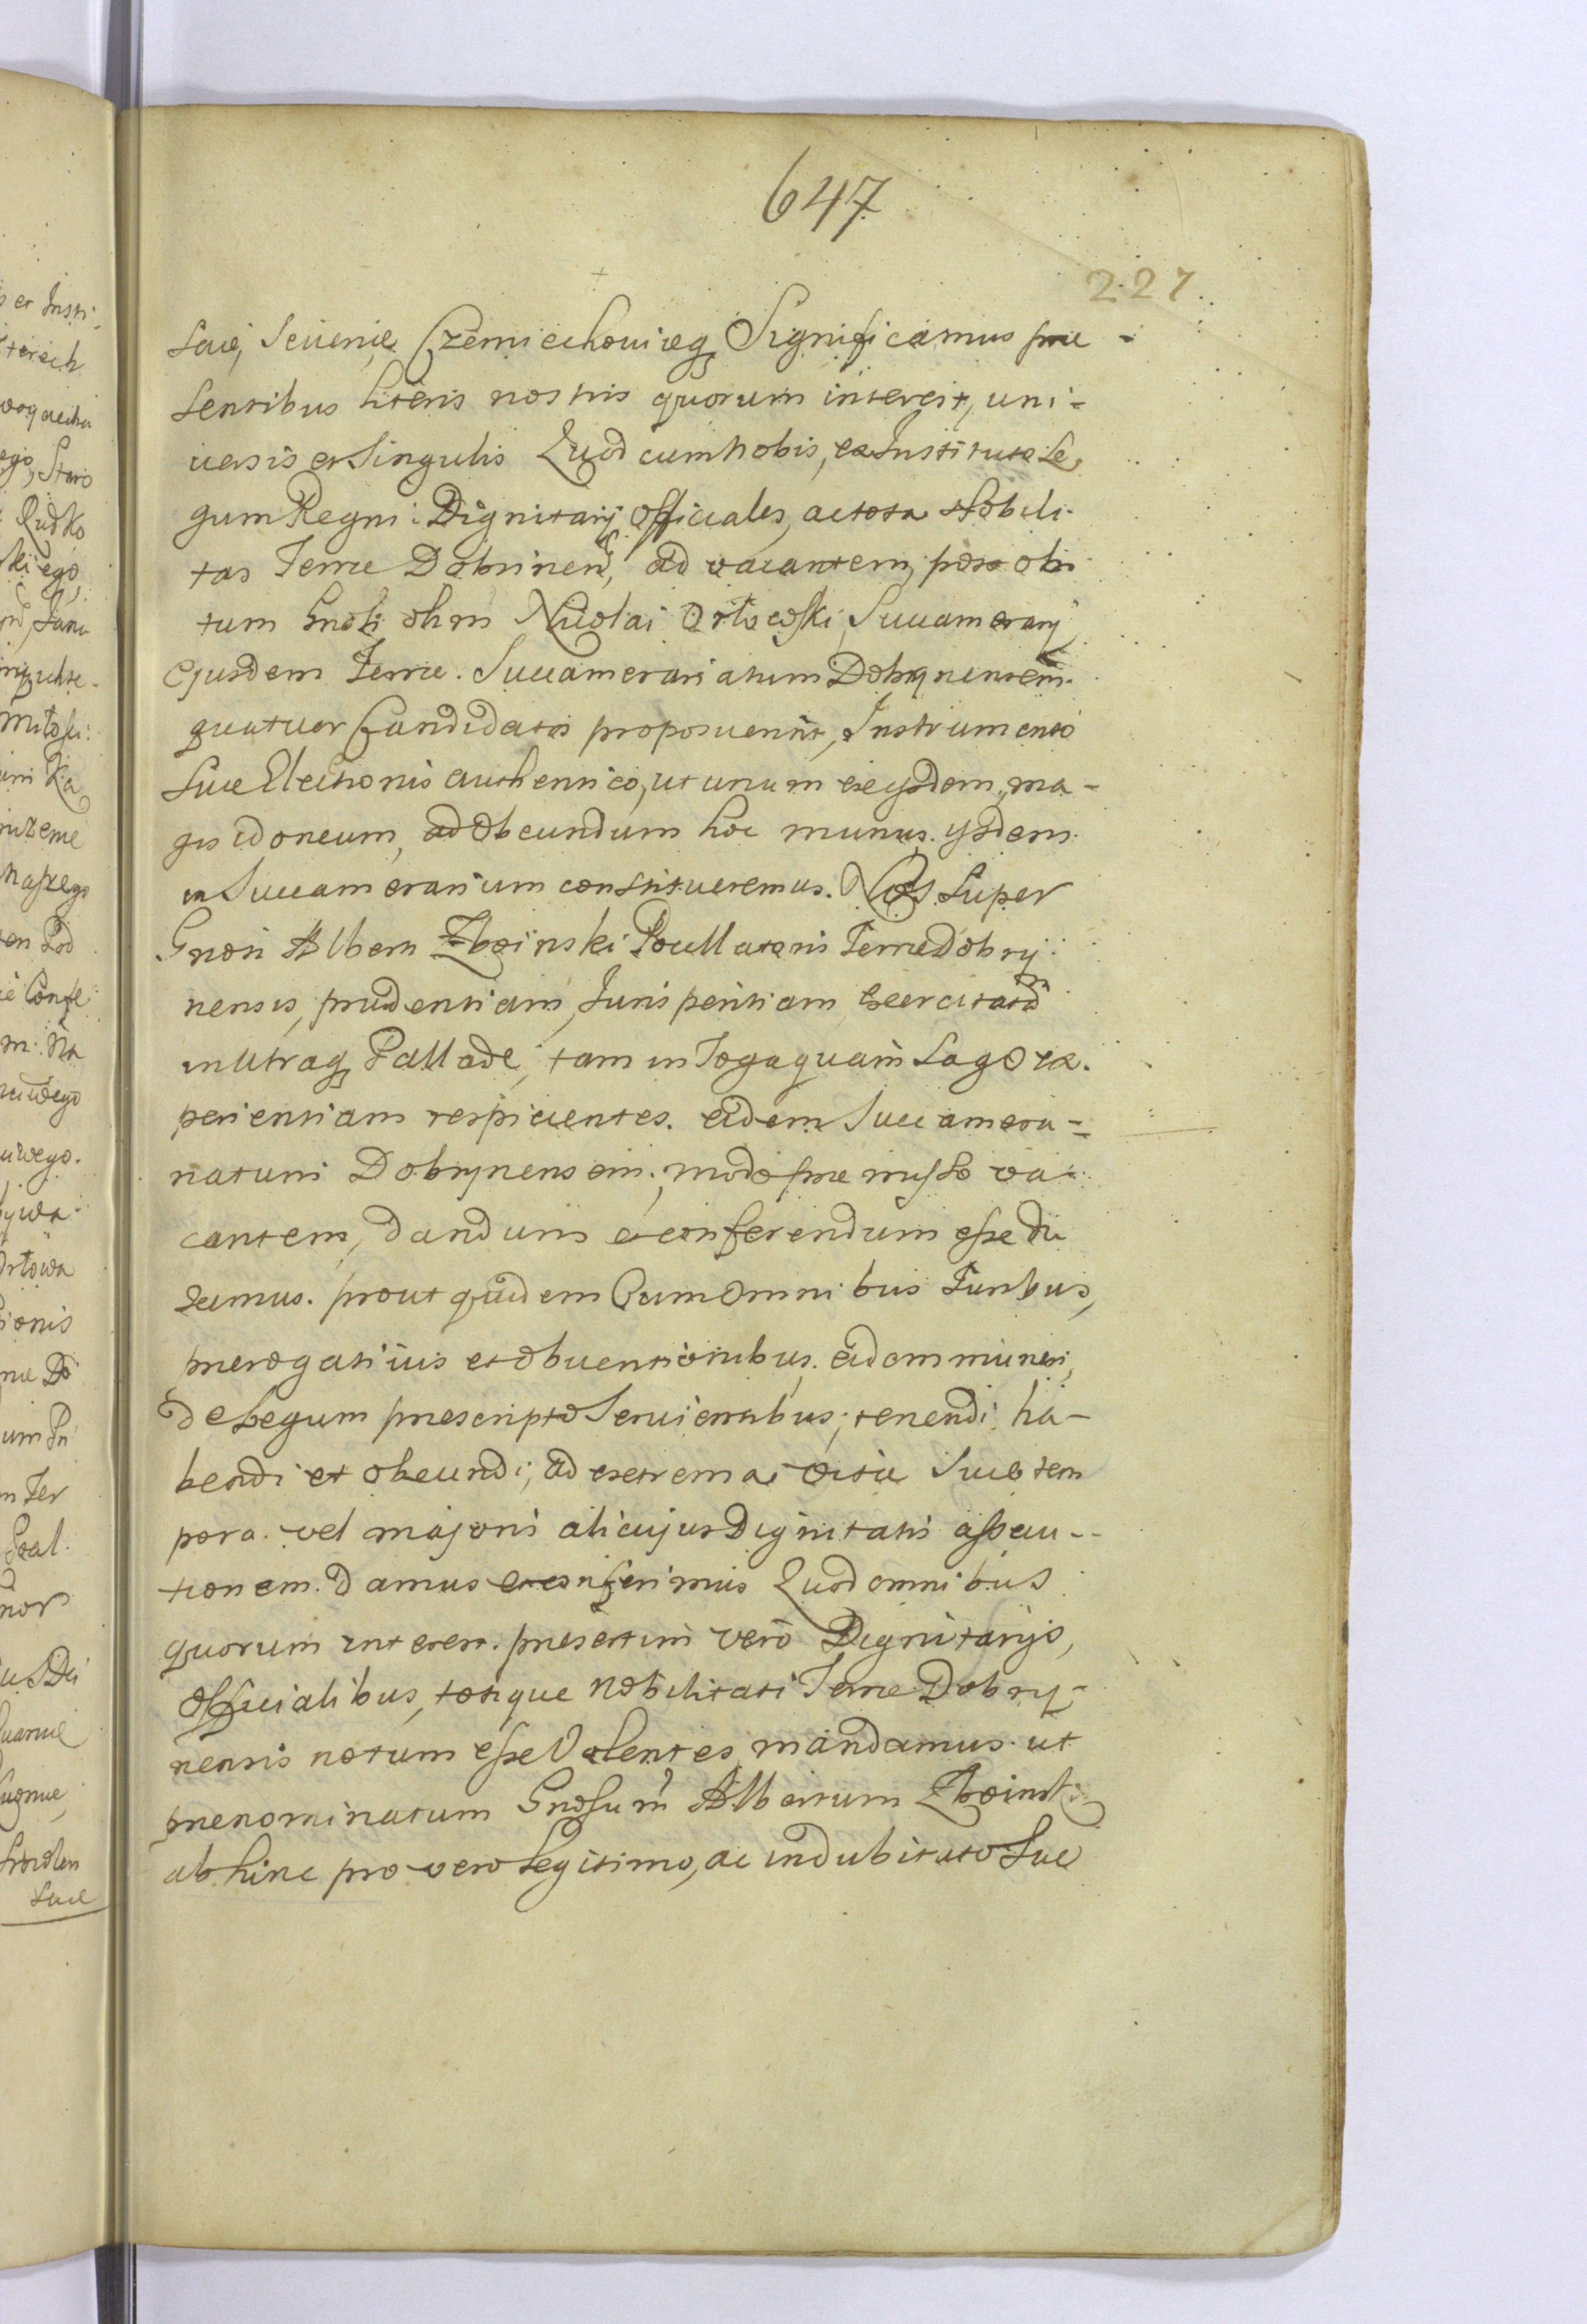 647
227.
scie, Seuerie, Czerniechouieq, Significamus prae-
sentibus literis nostris quorum interest, uni-
uersis et Singulis Quod cum Nobis, ex Instituto Le
gum Regni: Dignitarij Officiales, ac tota Nobili-
tas Terrae Dobrinen, ad vacantem post obi
tum Gnosi olim Nicolai Orłowski Succamerarij
Ejusdem Terrae. Succamerariatum Dobrynensem
quatuor Candidatos proposuerint, Instrumento
suae Electionis authentico, ut unum ex ijsdem, ma-
gis idoneum, ad obeundum hoc munus. ijsdem
in Succamerarium constitueremus. Nos Super
Gnosi Alberti Zboinski Pocillatoris Terrae Dobry
nensis, prudentiam, Juris peritiam Exercitatā
in Utraq Pallade, tam in Toga quam Sago ex.
perientiam respicientes. eidem Succamera-
riatum Dobrynensem modo praemisso va
cantem, dandum et conferendum esse du
ximus. prout quidem Cum Omnibus Juribus,
praerogatiuis et obuentionibus. eidem muneri,
de Legum praescripto Seruientibus; tenendi ha-
bendi et obeundi; ad extrema vitae Suae tem
pora. vel majoris alicujus Dignitatis assecu--
tionem. Damus et conferimus Quod omnibus
quorum interest. praesertim vero Dignitarijs,
Officialibus, totique Nobilitati Terrae Dobry-
nensis notum esse Volentes mandamus. ut
praenominatum Gnosum Albertum Zboinski
ab hinc pro vero Legitimo, ac indubitato Suc